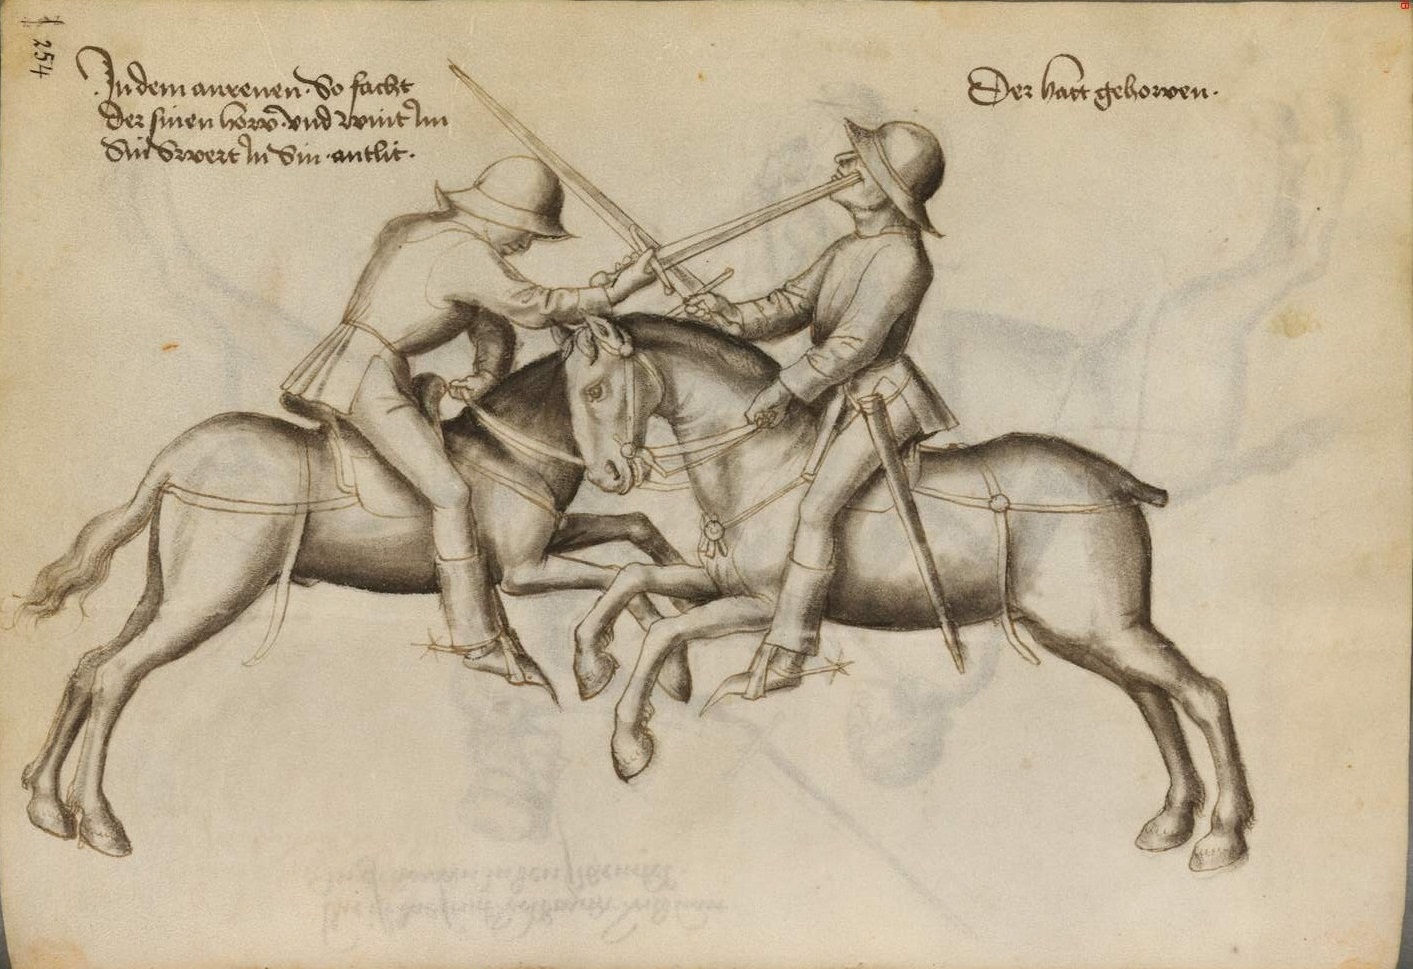 254
In dem anrenen · So facht
der sinen how̄ · vnd wint Im
Sin Swert In Sin · antlit ·
Der hatt gehowen ·